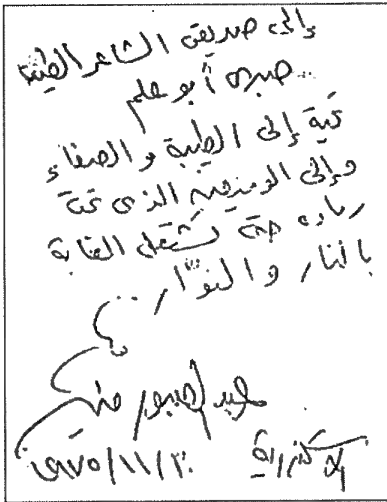 إلى صديقى الشاعر الطيب
صبرى أبو علم
تحية إلى الطيبة والصفاء
وإلى الوميض الذى تحت
رماده حتى تشتعل الغابة
بالنار والنوار..
عبد الصبور منير
الإسكندرية ٣٠/١١/١٩٧٥